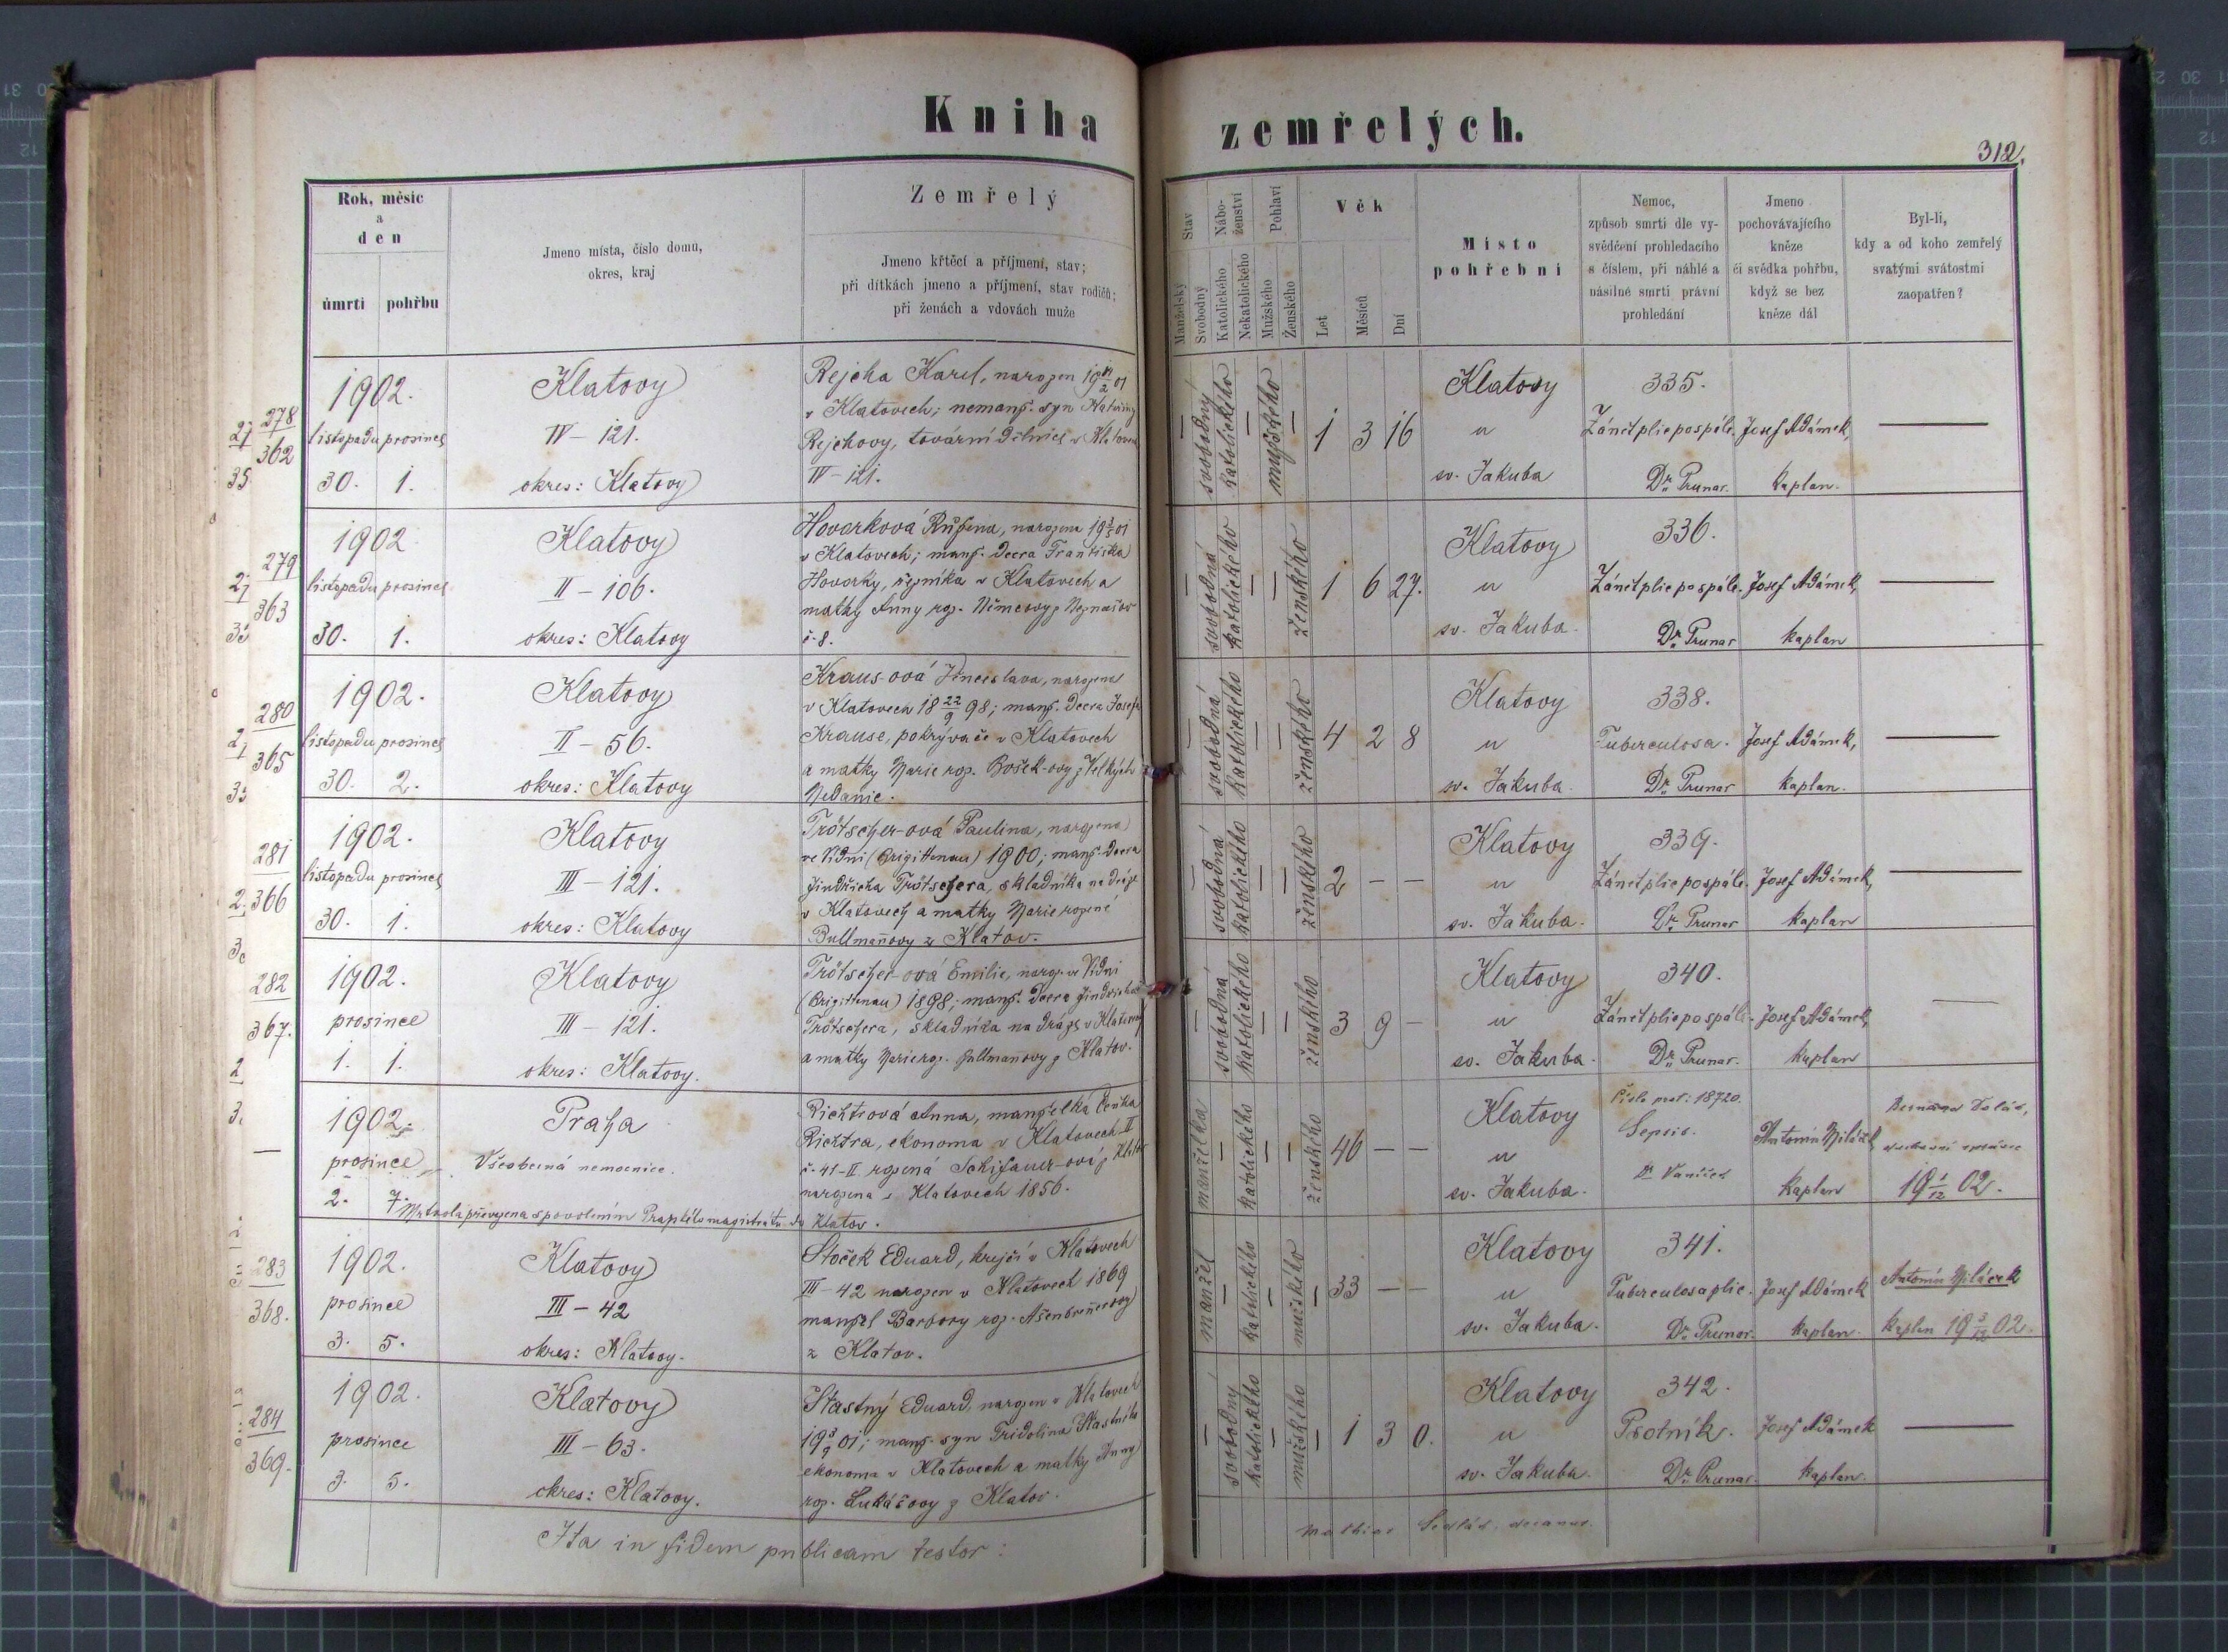 Kniha zemřelých.
312.
Rok, měsíc
a
den
úmrtí
pohřbu
Jmeno místa, číslo domu,
okres, kraj
Zemřelý
Jmeno křtěcí a příjmení, stav;
při dítkách jmeno a příjmení, stav rodičů;
při ženách a vdovách muže
Stav
Manželský
Svobodný
Nábo-
ženství
Katolického
Nekatolického
Pohlaví
Mužského
Ženského
Věk
Let
Měsíců
Dní
Místo
pohřební
Nemoc,
způsob smrti dle vy-
svědčení prohledacího
s číslem, při náhlé a
násilné smrti právní
prohledání
Jmeno
pochovávajícího
kněze
či svědka pohřbu,
když se bez
kněze dál
Byl-li,
kdy a od koho zemřelý
svatými svátostmi
zaopatřen?
278
362
1902.
listopadu prosince
30. 1.
Klatovy
IV – 121.
okres: Klatovy
Rejcha Karel, narozen
v Klatovech; manž. syn
Rejchovy, tovární dělnice v
IV – 121.
svobodný
katolického
mužského
1 3 16
Klatovy
u
sv. Jakuba
335.
Zánět plic po spále.
Dr. Prunar.
Josef Adámek,
kaplan.
279
363
1902
listopadu prosince
30. 1.
Klatovy
II – 106.
okres: Klatovy
Hovorková Růžena, narozena 19 01
v Klatovech; manž. dcera Františka
Hovorky, v Klatovech a
matky Anny roz. Němcovy z
č. 8.
svobodná
katolického
ženského
1 6 27.
Klatovy
u
sv. Jakuba.
336.
Zánět plic po spále.
Dr. Prunar
Josef Adámek,
kaplan
280
365
1902.
listopadu prosince
30. 2.
Klatovy
II – 56.
okres: Klatovy
Kraus-ová Venceslava, narozena
v Klatovech 18 22/9 98; manž. dcera Josefa
Krause, pokrývače v Klatovech
a matky Marie roz. Bošek-ovy z Velkých
svobodná
katolického
ženského
4 2 8
Klatovy
u
sv. Jakuba.
338.
Tuberculosa.
Dr. Prunar
Josef Adámek,
kaplan.
281
366
1902.
listopadu prosince
30. 1.
Klatovy
III – 121.
okres: Klatovy
Trötscher-ová Paulina, narozena
ve Vídni (Brigittenau) 1900; manž. dcera
Jindřicha Trötschera, skladníka na dráze
v Klatovech a matky Marie rozené
Bullmannovy z Klatov.
svobodná
katolického
ženského
2 – –
Klatovy
u
sv. Jakuba.
339.
Zánět plic po spále.
Dr. Prunar
Josef Adámek,
kaplan
282
367.
1902.
prosince
1. 1.
Klatovy
III – 121.
okres: Klatovy.
Trötscher-ová Emilie, naroz. ve Vídni
(Brigittenau) 1898; manž. dcera Jindřicha
Trötschera, skladníka na dráze v Klatovech
a matky Marie roz. Bullmanovy z Klatov.
svobodná
katolického
ženského
3 9 –
Klatovy
u
sv. Jakuba.
340.
Zánět plic po spále.
Dr. Prunar.
Josef Adámek,
kaplan
1902.
prosince
2. 7.
Praha
Všeobecná nemocnice.
Richtrová Anna, manželka
Richtra, ekonoma v Klatovech II
č. 41-II rozená z Klatov
narozena v Klatovech 1856.
Mrtvola převezena s povolením Pražského magistrátu do Klatov.
manželka
katolického
ženského
46 – –
Klatovy
u
sv. Jakuba.
Číslo prot: 18720.
Sepsis.
Dr. Vaníček
Antonín Miláček
kaplan
duchovní správce
19 1/12 02.
283
368.
1902.
prosince
3. 5.
Klatovy
III – 42
okres: Klatovy.
Stoček Eduard, krejčí v Klatovech
III – 42 narozen v Klatovech 1869
manžel Barbory roz. Ašenbrennerovy
z Klatov.
manžel
katolického
mužského
33 – –
Klatovy
u
sv. Jakuba.
341.
Tuberculosa plic.
Dr. Prunar.
Josef Adámek
kaplan.
Antonín Miláček
kaplan 19 3/12 02.
284
369.
1902.
prosince
3. 5.
Klatovy
III – 63.
okres: Klatovy.
Šťastný Eduard, narozen v Klatovech
19 3/9 01; manž. syn Fridolina Šťastného
ekonoma v Klatovech a matky Anny
roz. Lukášovy z Klatov.
svobodný
katolického
mužského
1 3 0.
Klatovy
u
sv. Jakuba.
342.
Psotník.
Dr. Prunar.
Josef Adámek
kaplan.
Ita in fidem publicam testor:
Mathias Sedlák. decanus.